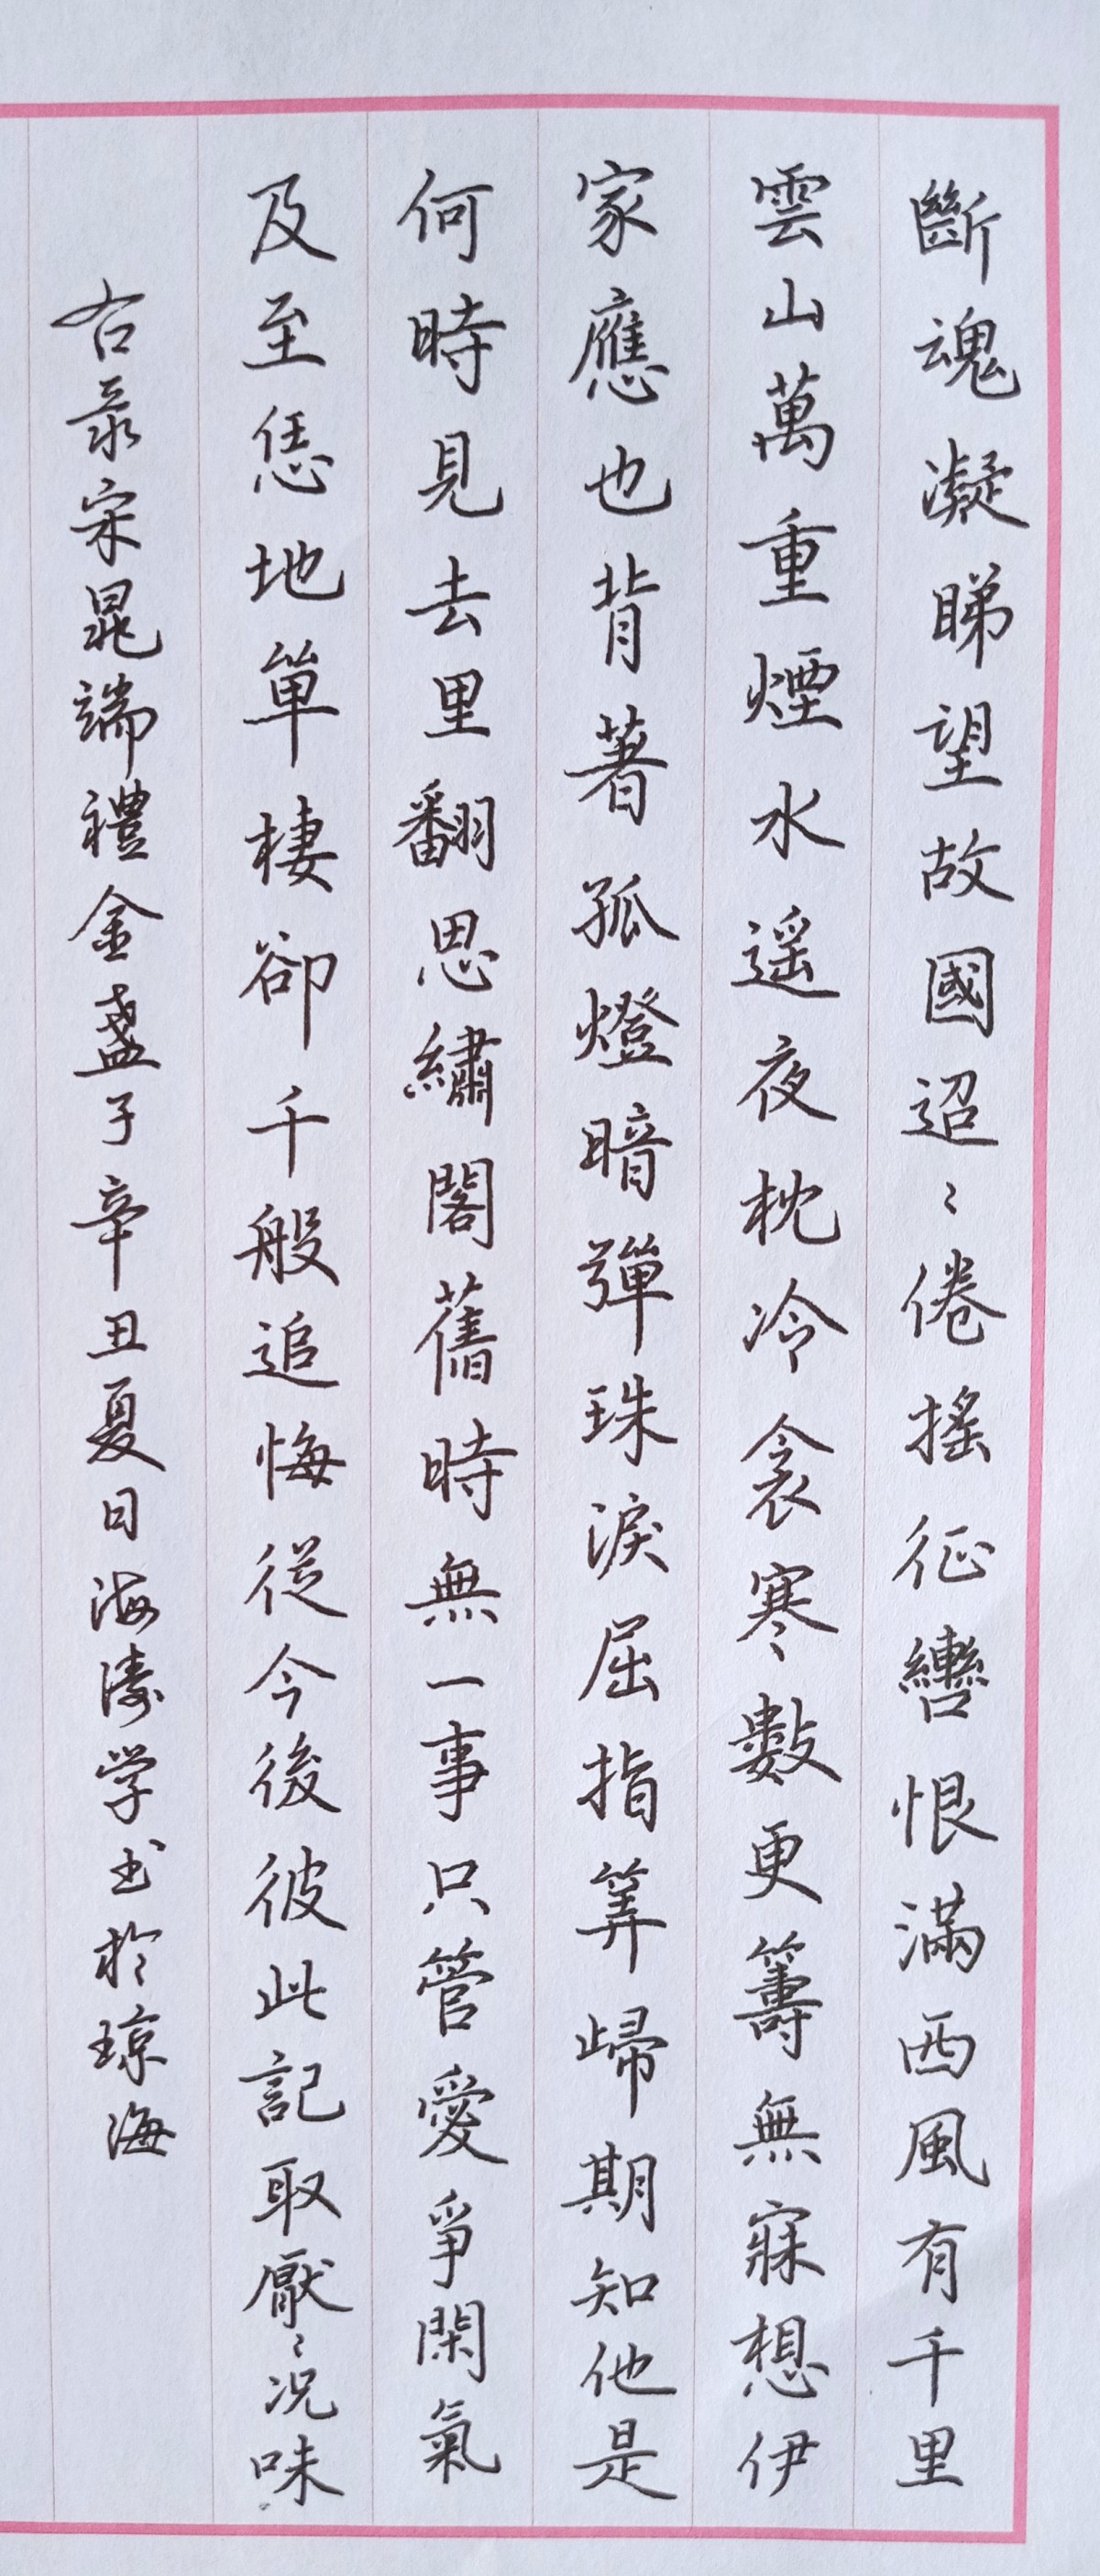 斷魂凝睇望故國迢〻倦搖征轡恨滿西風有千里
雲山萬重煙水遥夜枕冷衾寒數更籌無寐想伊
家應也背著孤燈暗彈珠淚屈指筭歸期知他是
何時見去里翻思繡閣舊時無一事只管愛爭閑氣
及至恁地單棲卻千般追悔從今後彼此記取厭〻況味
右录宋晁端禮金盞子辛丑夏日海濤学书於琼海